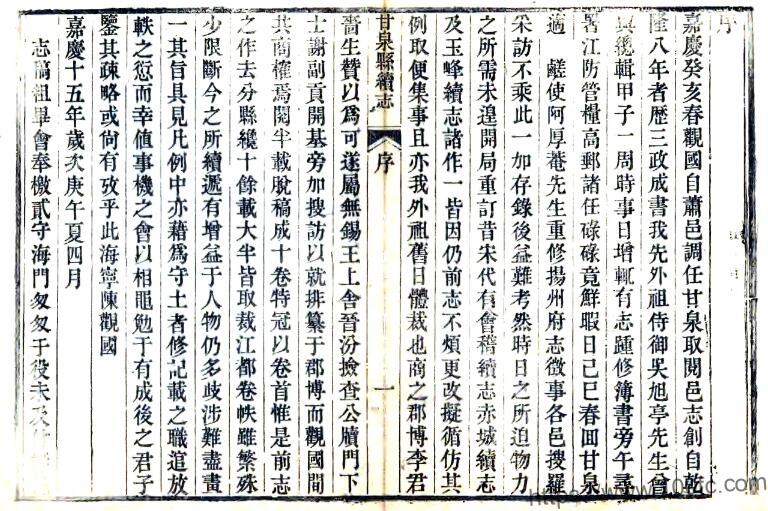 序
嘉慶癸亥春觀國自蕭邑調任甘泉取閱邑志創自乾
隆八年者歷三政成書我先外祖侍御吳旭亭先生會
其纔輯甲子一周時事日增輒有志踵修簿書旁午尋
署江防管糧高郵諸任碌碌竟鮮暇日己巳春回甘泉
適 鹺使阿厚菴先生重修揚州府志徵事各邑搜羅
采訪不乘此一加存錄後益難考然時日之所迫物力
之所需未遑開局重訂昔宋代有會稽續志赤城續志
及玉峰續志諸作一皆因仍前志不煩更改擬循仿其
例取便集事且亦我外祖舊日體裁也商之郡博李君
甘泉縣續志 序 一
嗇生贊以為可遂屬無錫王上舍晉汾撿查公牘門下
士謝副貢開基旁加搜訪以就排纂于郡博而觀國間
共商榷焉閱半載脫稿成十卷特冠以卷首惟是前志
之作去分縣纔十餘載大半皆取裁江都卷帙雖繁殊
少限斷今之所續遞有增益于人物仍多歧涉難盡畫
一其旨具見凡例中亦藉為守土者修記載之職逭放
軼之愆而幸值事機之會以相黽勉于有成後之君子
鑒其疎略或尚有攷乎此海寧陳觀國
嘉慶十五年歲次庚午夏四月
志稿粗畢會奉檄貳守海門匆匆于役未及